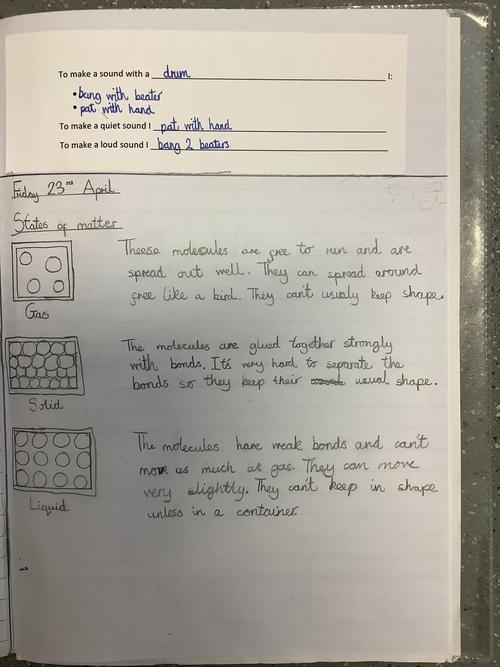 To make a sound with a drum I:
• bang with beater
• pat with hand
To make a quiet sound I pat with hand
To make a loud sound I bang 2 beaters
Friday 23rd April
States of matter
Theese molecules are free to run and are
spread out well. They can spread around
free like a bird. They can't usualy keep shape.
Gas
The molecules are glued together strongly
with bonds. It's very hard to separate the
bonds so they keep their usual shape.
Solid
The molecules have weak bonds and can't
move as much as gas. They can move
very slightly. They can't keep in shape
unless in a container.
Liquid